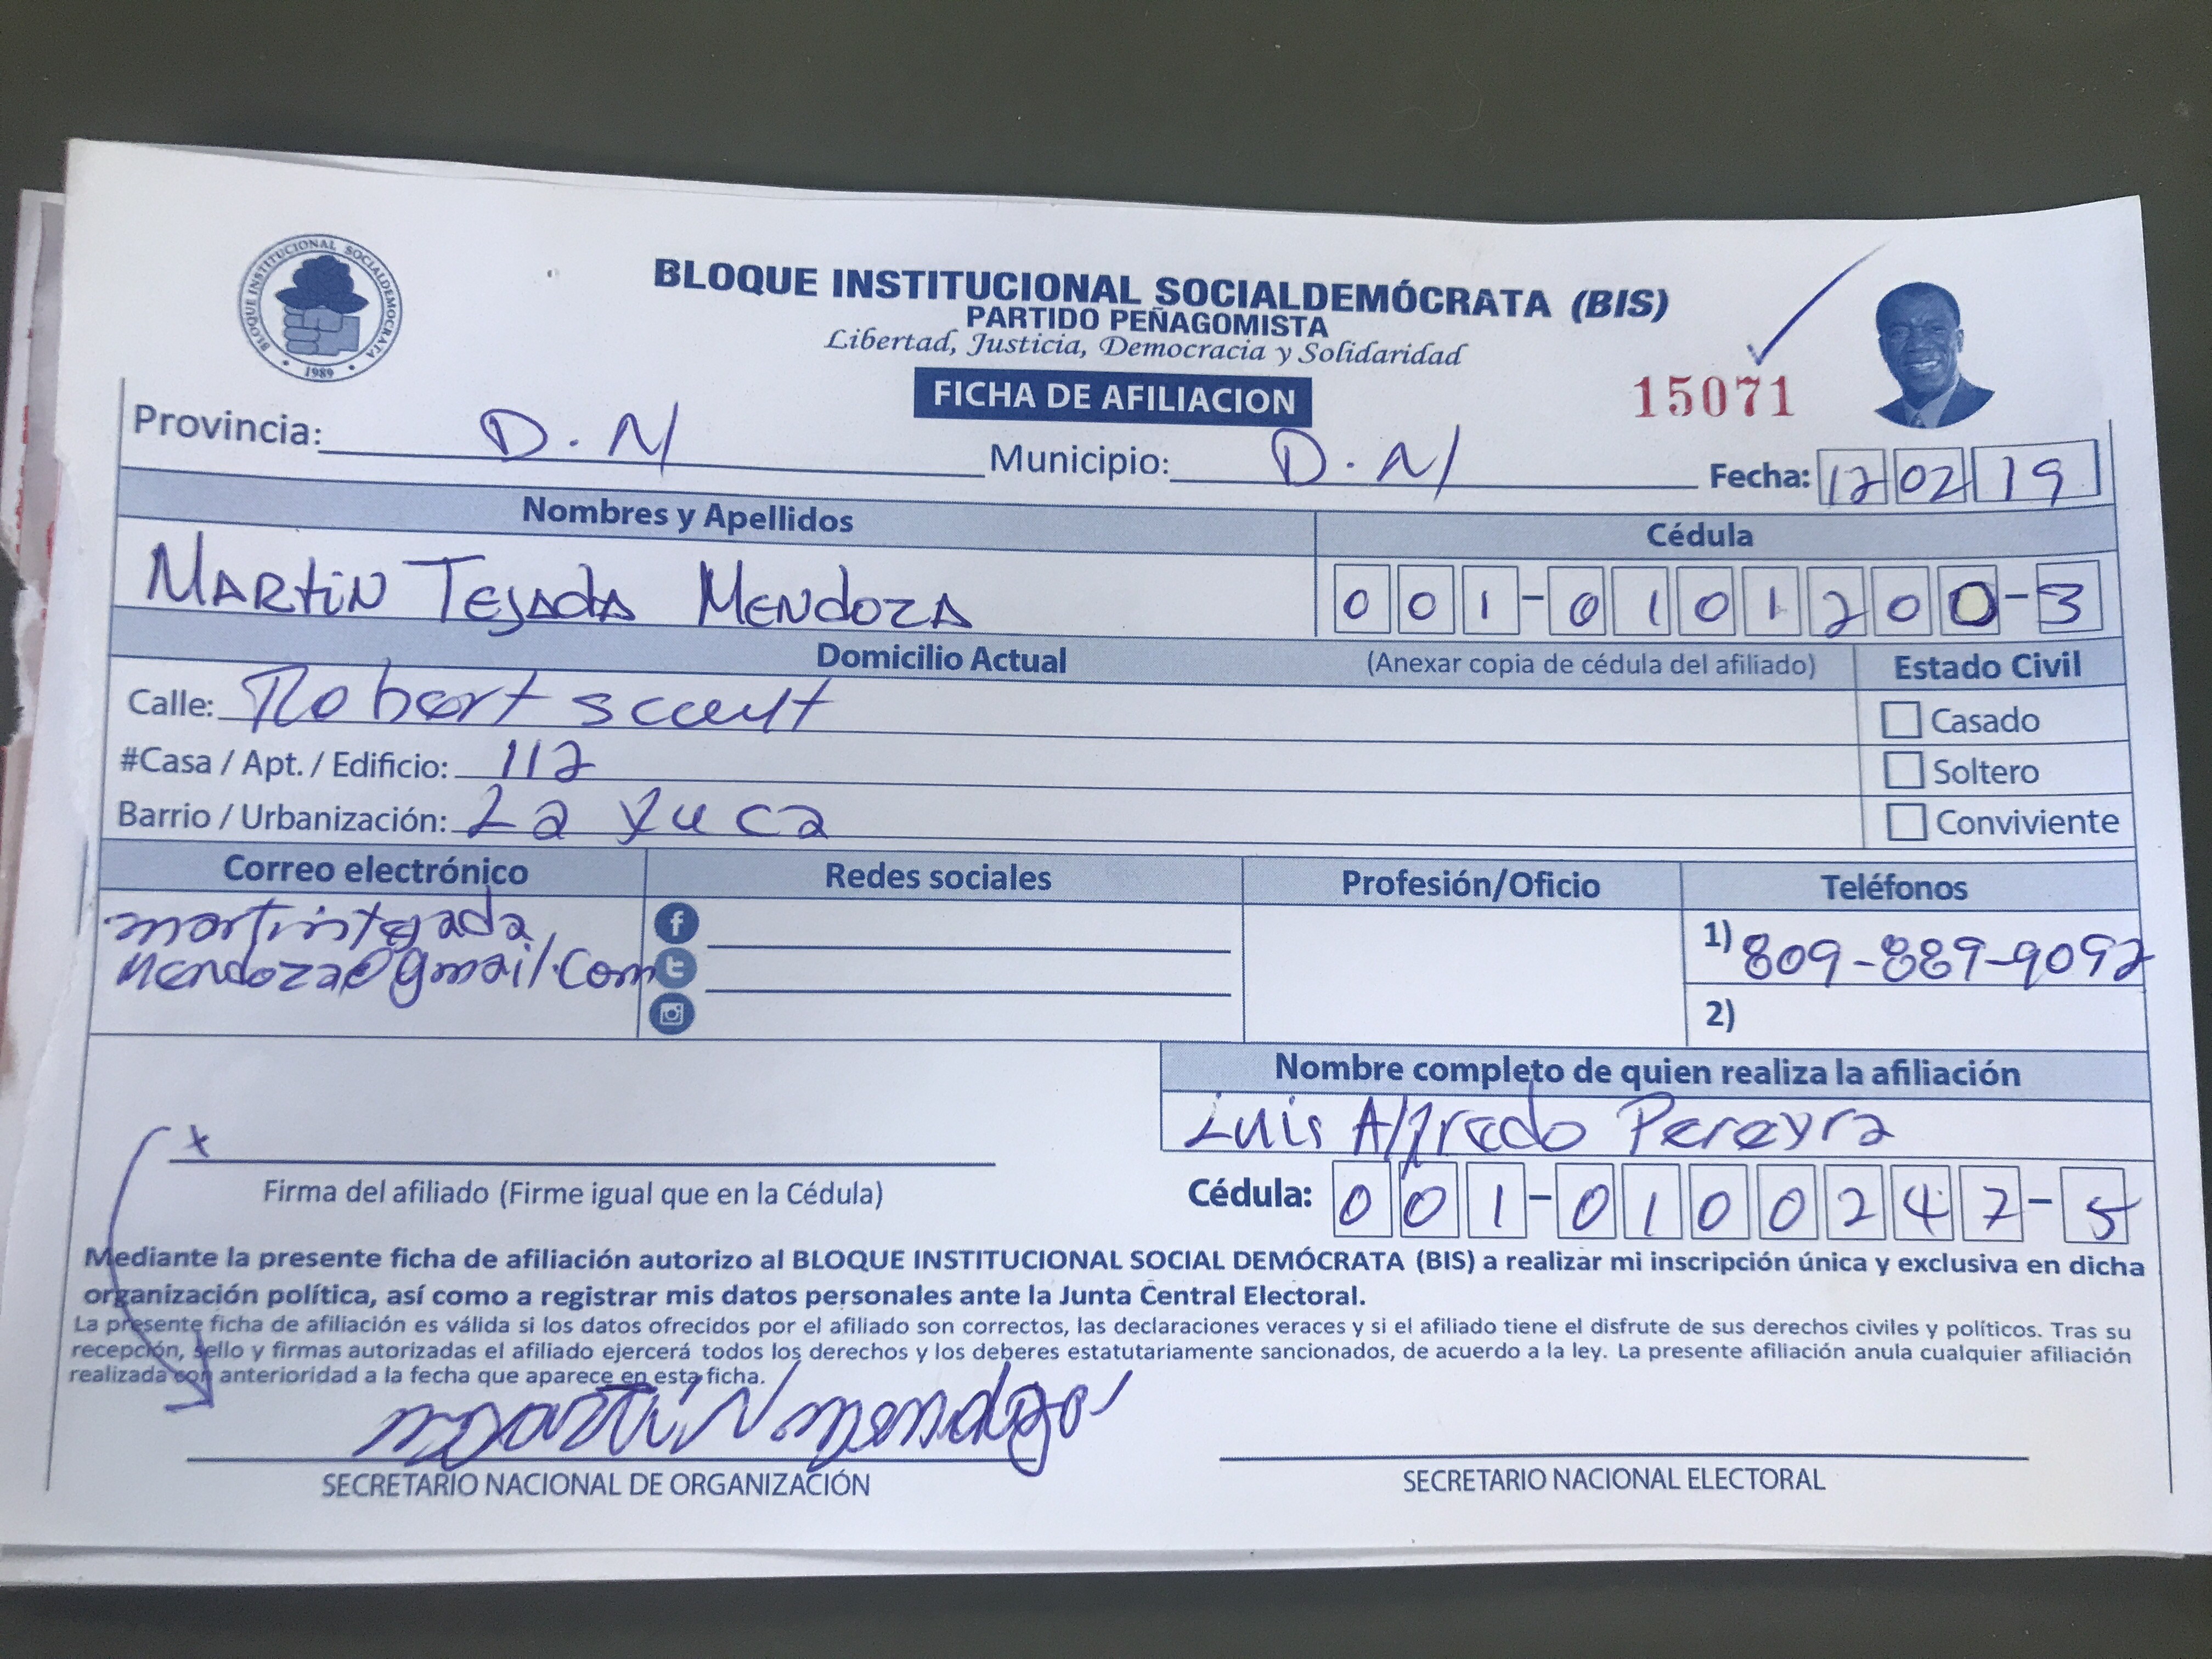 BLOQUE INSTITUCIONAL SOCIALDEMOCRATA
1989
BLOQUE INSTITUCIONAL SOCIALDEMÓCRATA (BIS)
PARTIDO PEÑAGOMISTA
Libertad, Justicia, Democracia y Solidaridad
FICHA DE AFILIACION
15071
Provincia: D.N Municipio: D.N Fecha: 12 02 19
Nombres y Apellidos Cédula
MARtiN TEJAdA MENdozA 001-0101200-3
Domicilio Actual (Anexar copia de cédula del afiliado) Estado Civil
Calle: Robert Casado
#Casa / Apt. / Edificio: 112 Soltero
Barrio / Urbanización: La Yuca Conviviente
Correo electrónico Redes sociales Profesión/Oficio Teléfonos
martintejada
mendoza@gmail.com
1) 809-889-9092
2)
Nombre completo de quien realiza la afiliación
Luis Alfredo Pereyra
x
Firma del afiliado (Firme igual que en la Cédula) Cédula: 001-0100247-5
Mediante la presente ficha de afiliación autorizo al BLOQUE INSTITUCIONAL SOCIAL DEMÓCRATA (BIS) a realizar mi inscripción única y exclusiva en dicha
organización política, así como a registrar mis datos personales ante la Junta Central Electoral.
La presente ficha de afiliación es válida si los datos ofrecidos por el afiliado son correctos, las declaraciones veraces y si el afiliado tiene el disfrute de sus derechos civiles y políticos. Tras su
recepción, sello y firmas autorizadas el afiliado ejercerá todos los derechos y los deberes estatutariamente sancionados, de acuerdo a la ley. La presente afiliación anula cualquier afiliación
realizada con anterioridad a la fecha que aparece en esta ficha.
Martin Mendoza
SECRETARIO NACIONAL DE ORGANIZACIÓN SECRETARIO NACIONAL ELECTORAL